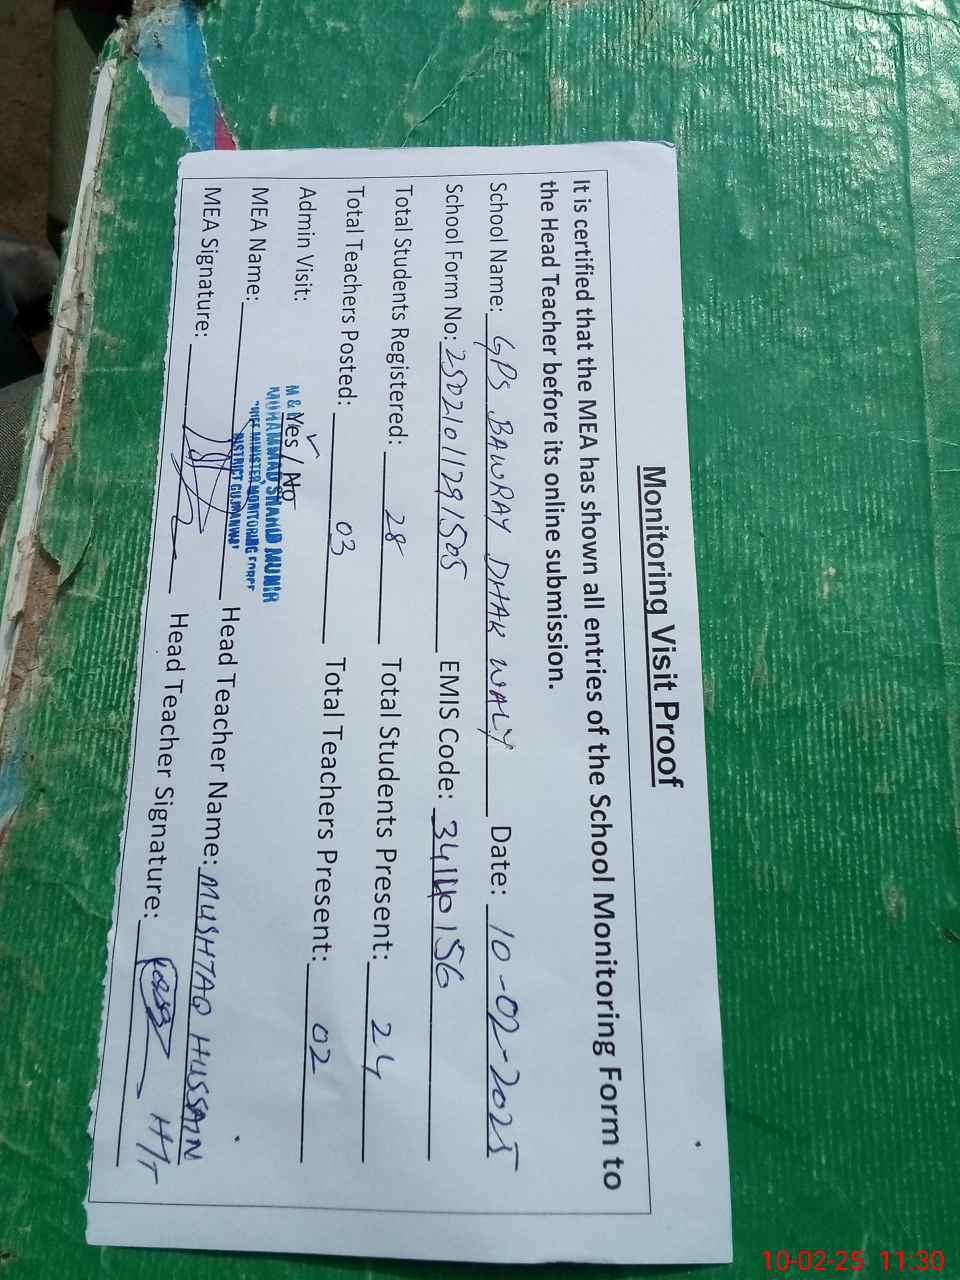 Monitoring Visit Proof
It is certified that the MEA has shown all entries of the School Monitoring Form to
the Head Teacher before its online submission.
School Name: GPS BAWRAY DHAK WALY Date: 10-02-2025
School Form No: 25021011291505 EMIS Code: 341140156
Total Students Registered: 28 Total Students Present: 24
Total Teachers Posted: 03 Total Teachers Present: 02
Admin Visit: Yes / No
M &
MUHAMMAD SHAHID MUNIR
CHIEF MINISTER MONITORING FORCE
DISTRICT GUJRANWALA
MEA Name: Head Teacher Name: MUSHTAQ HUSSAIN
MEA Signature: Head Teacher Signature: H/T
10-02-25 11:30